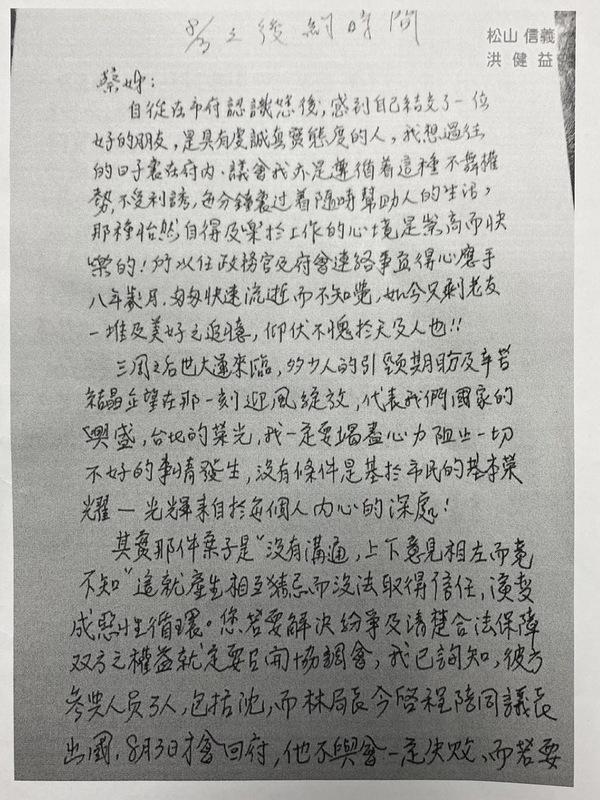 8/3 之後約時間
松山 信義
洪 健 益
蔡姊：
自從在市府認識您後，感到自己結交了一位
好的朋友，是具有虔誠與實態度的人，我想過往
的日子裏在府內、議會我亦是遵循着這種不舞權
勢，不受利誘，每分鐘裏过着隨時幫助人的生活，
那種怡然自得及樂於工作的心境是崇高而快
樂的！所以任政務官及府會連絡事宜得心應手
八年歲月，匆匆快速流逝而不知覺，如今只剩老友
一堆及美好之追憶，仰伏不愧於天及人也！！
三周之后世大運來臨，多少人的引頸期盼及辛苦
結晶企望在那一刻迎風綻放，代表我們國家的
興盛，台北的榮光，我一定要竭盡心力阻止一切
不好的事情發生，沒有條件是基於市民的基本榮
耀－光輝來自於每個人內心的深處！
其實那件案子是"沒有溝通，上下意見相左而竟
不知"這就產生相互猜忌而沒法取得信任，演變
成惡性循環。您若要解決紛爭及清楚合法保障
双方之權益就一定要召開協調會，我已詢知，彼方
參與人員3人，包括沈，而林局長今啓程陪同議長
出國，8月3日才會回府，他不與會一定失敗、而若要